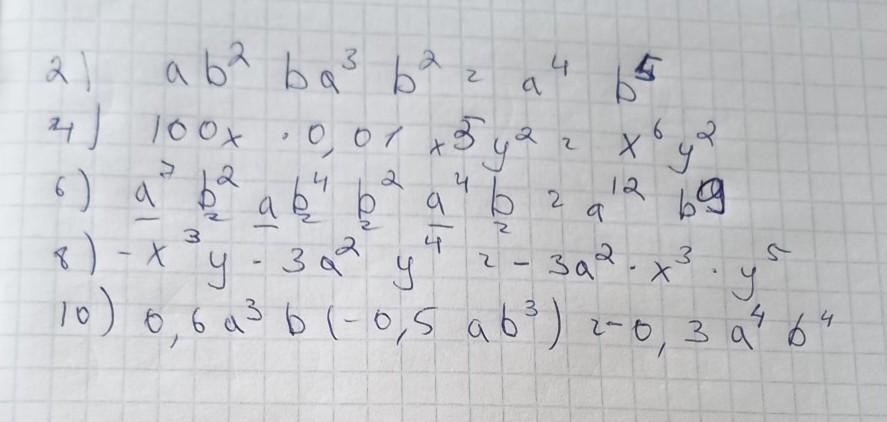 2) ab² ba³ b² = a⁴ b⁵
4) 100x · 0,01 x⁵y² = x⁶y²
6) a⁷ b² ab⁴ b² a⁴ b = a¹² b⁹
8) -x³y · 3a² y⁴ = -3a² · x³ · y⁵
10) 0,6a³ b (-0,5 ab³) = -0,3 a⁴ b⁴